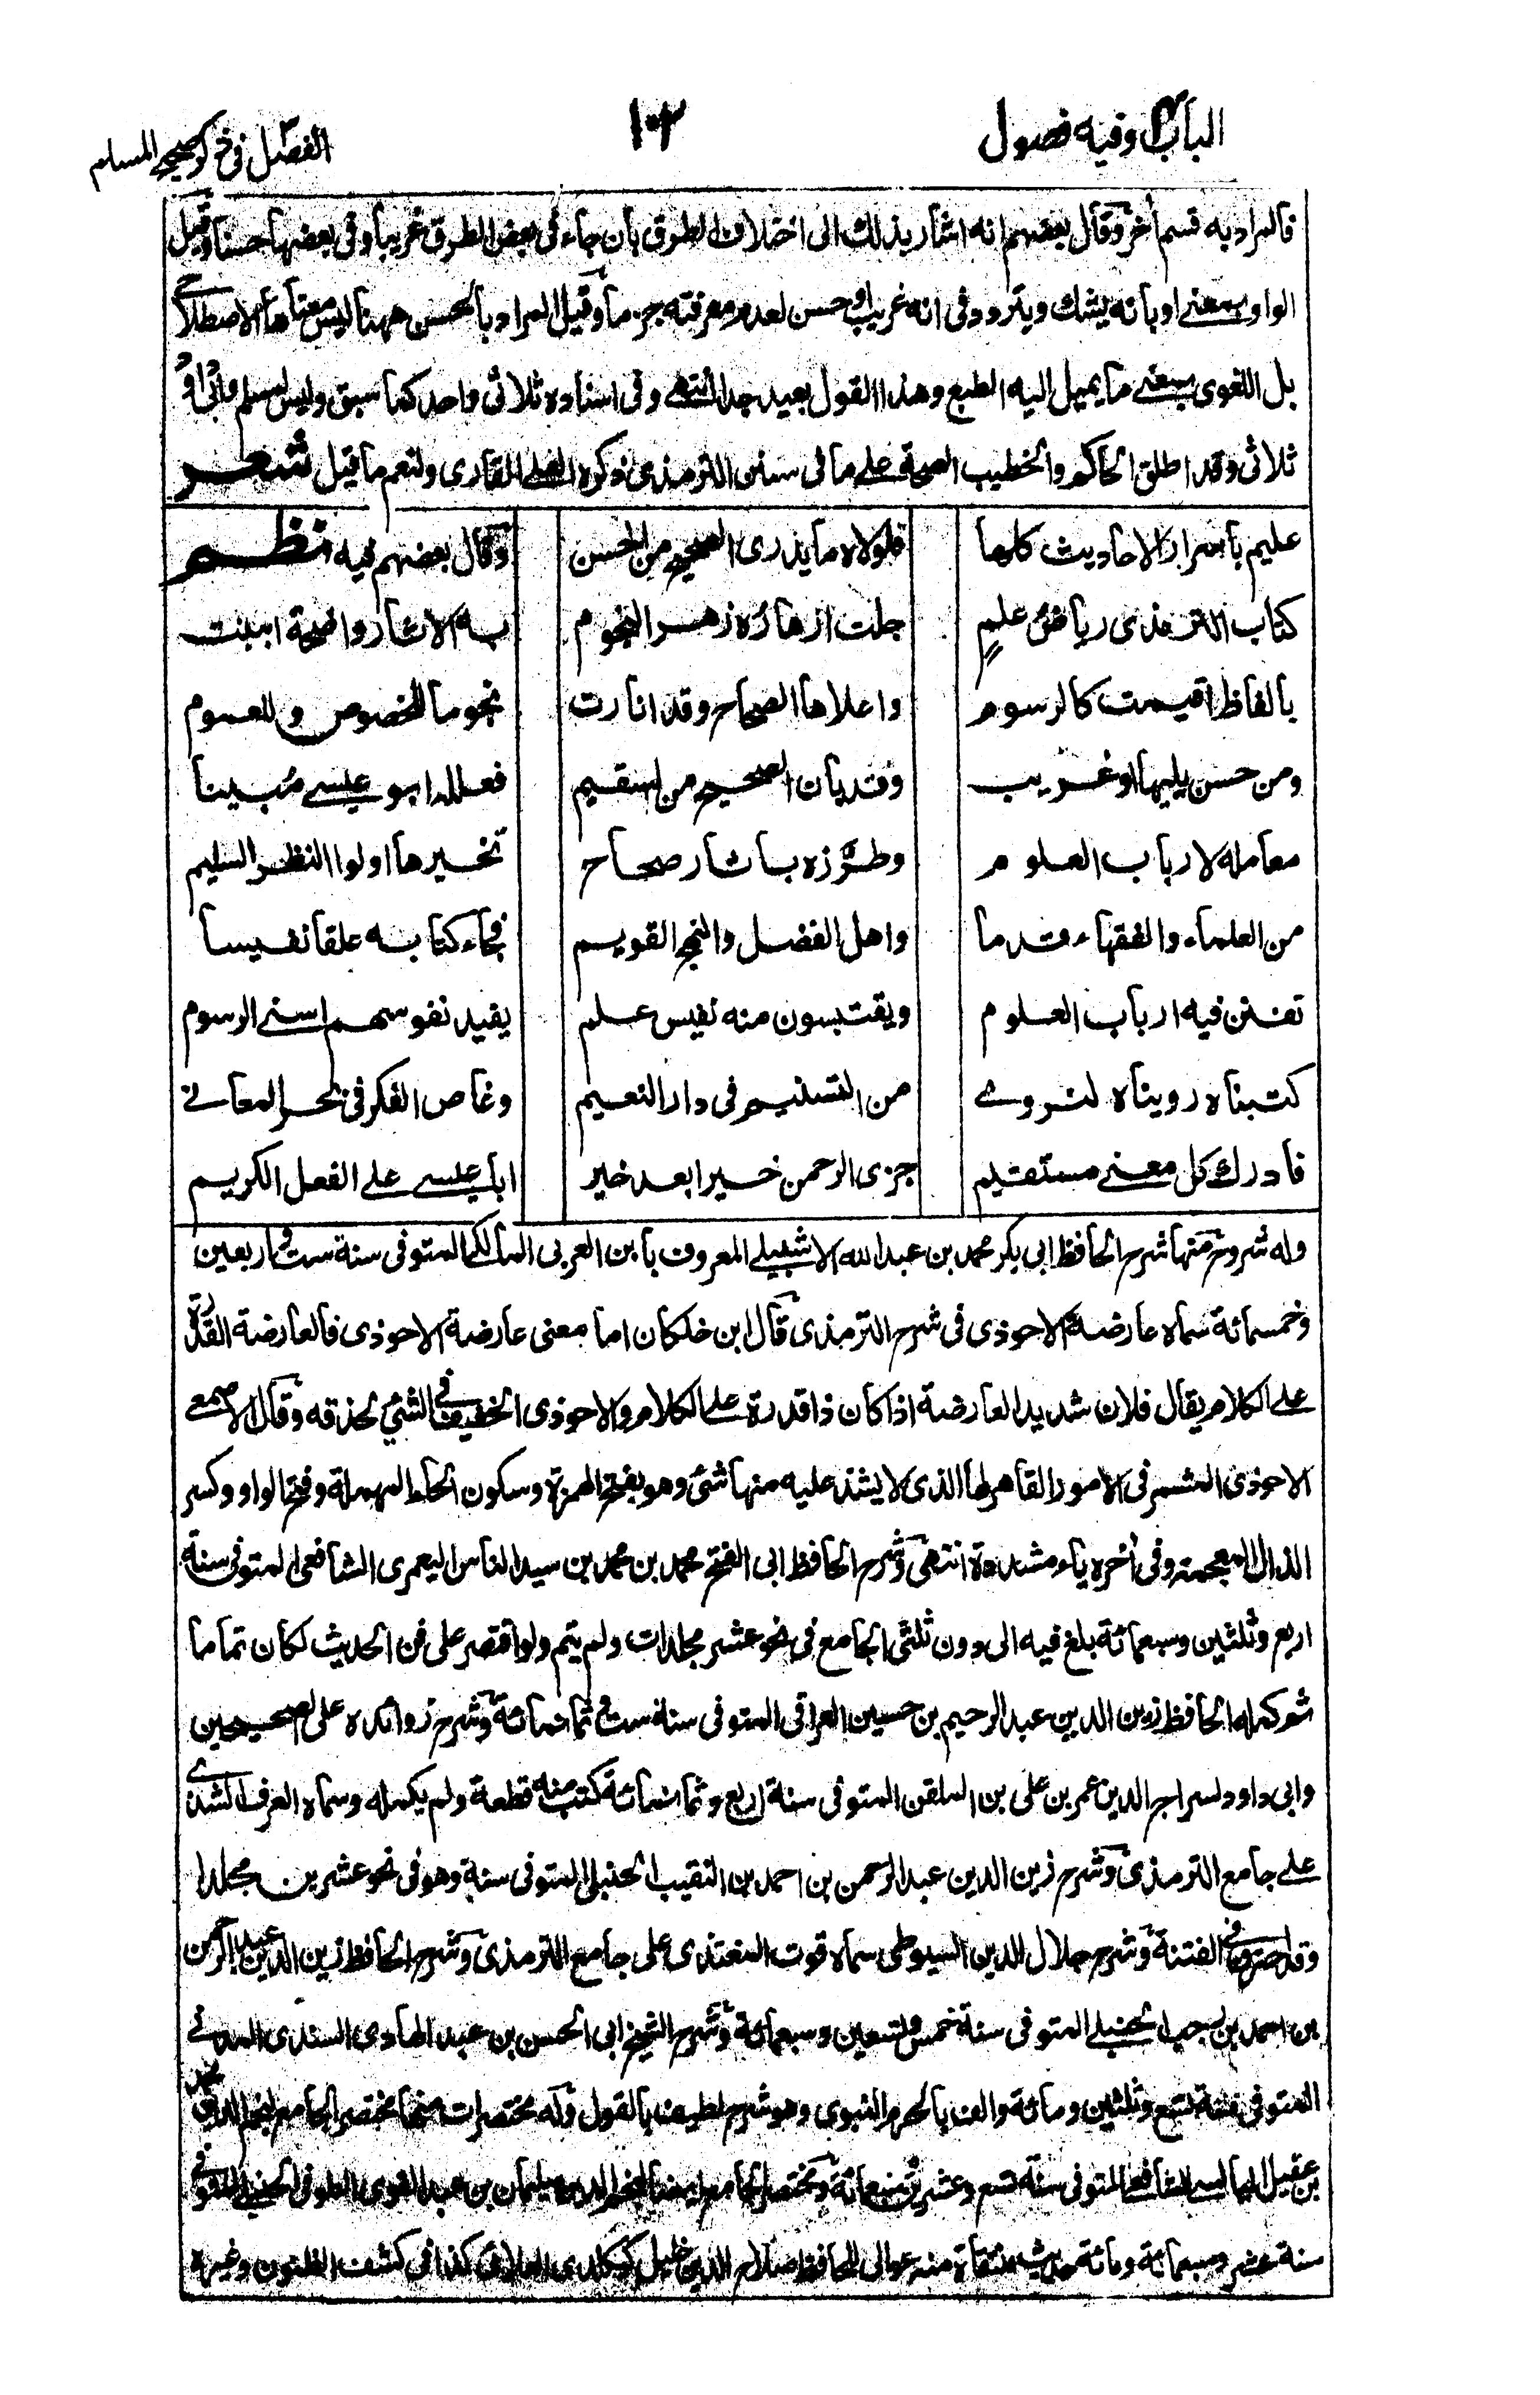 الباب ٤ وفيه فصول
١٠٢
الفصل ٣ في ذكر صحيح المسلم
فالمراد به قسم أخر وقال بعضهم انه اشار بذلك الى اختلاف الطرق بان جاء في بعض الطرق غريبا وفي بعضها حسنا وقيل
الواو بمعنے او بانه يشك ويتردد فى انه غريب او حسن لعدم معرفته جزما وقيل المراد بالحسن ههنا ليس معناها الاصطلاحے
بل اللغوى بمعنے ما يميل اليه الطبع وهذا القول بعيد جدا انتهے وفى اسناده ثلاثى واحد كما سبق وليس لمسلم وابى داؤد
ثلاثى وقد اطلق الحاكم والخطيب الصحة علے ما فى سنن الترمذى ذكره العلے القارى ولنعم ما قيل شعر
عليم باسرار الاحاديث كلها فلولاه ما يدرى الصحيح من الحسن وقال بعضهم فيه نظم
كتاب الترمذى رياض علمٍ جلت ازهاره زهر النجوم به الاثار واضحة ابينت
بالفاظ اقيمت كالرسوم واعلاها الصحاح وقد انارت نجوما للخصوص وللعموم
ومن حسن يليها او غريب وقد بان الصحيح من السقيم فعلله ابو عيسے مُبينا
معامله لارباب العلوم وطرَّزه باثار صحاح تخيرها اولوا النظر السليم
من العلماء والفقهاء قدما واهل الفضل والنهج القويم فجاء كتابه علقا نفيسا
تفنن فيه ارباب العلوم ويقتبسون منه نفيس علم يفيد نفوسهم اسنے الرسوم
كتبناه رويناه لنروے من التسنيم فى دار النعيم وغاص الفكر فى بحر المعانے
فادرك كل معنے مستقيم جزى الرحمن خيرا بعد خير ابا عيسے علے الفعل الكريم
وله شروح منها شرح الحافظ ابى بكر محمد بن عبدالله الاشبيلے المعروف بابن العربى المالكى المتوفى سنة ست واربعين
وخمسمائة سماه عارضة الاحوذى فى شرح الترمذى قال ابن خلكان اما معنى عارضة الاحوذى فالعارضة القدرة
علے الكلام يقال فلان شديد العارضة اذا كان ذا قدرة علے الكلام والاحوذى الخفيف فى الشئ لحذقه وقال الاصمعے
الاحوذى المشمر فى الامور القاهر لها الذى لا يشذ عليه منها شئ وهو بفتح الهمزة وسكون الحاء المهملة وفتح الواو وكسر
الذال المعجمة وفى أخره ياء مشددة انتهى وشرح الحافظ ابى الفتح محمد بن محمد بن سيد الناس اليعمرى الشافعى المتوفى سنة
اربع وثلثين وسبعمائة بلغ فيه الى دون ثلثى الجامع فى نحو عشر مجلدات ولم يتم ولو اقتصر على فن الحديث لكان تماما
ثم كمله الحافظ زين الدين عبد الرحيم بن حسين العراقى المتوفى سنة ست وثمانمائة وشرح زوائده على الصحيحين
وابى داود لسراج الدين عمر بن على بن الملقن المتوفى سنة اربع وثمانمائة كتب منه قطعة ولم يكمله وسماه العرف الشذے
علے جامع الترمذى وشرح زين الدين عبد الرحمن بن احمد بن النقيب الحنبلى المتوفى سنة وهو فى نحو عشرين مجلدا
وقد احترق فى الفتنة وشرح جلال الدين السيوطى سماه قوت المغتذى على جامع الترمذى وشرح الحافظ زين الدين عبد الرحمن
بن احمد بن رجب الحنبلے المتوفى سنة خمس وتسعين وسبعمائة وشرح الشيخ ابى الحسن بن عبد الهادى السندى المدنے
المتوفى سنة تسع وثلثين ومائة والف بالحرم النبوى وهو شرح لطيف بالقول وله مختصرات منها مختصر الجامع لنجم الدين محمد
بن عقيل البالسے الشافعے المتوفى سنة تسع وعشرين وسبعمائة ومختصر الجامع ايضا لنجم الدين سليمان بن عبد القوى الطوفى الحنبلے المتوفى
سنة عشر وسبعمائة ومائة حديث منتقاة منه عوالى للحافظ صلاح الدين خليل كيكلدى العلائى كذا فى كشف الظنون وغيره